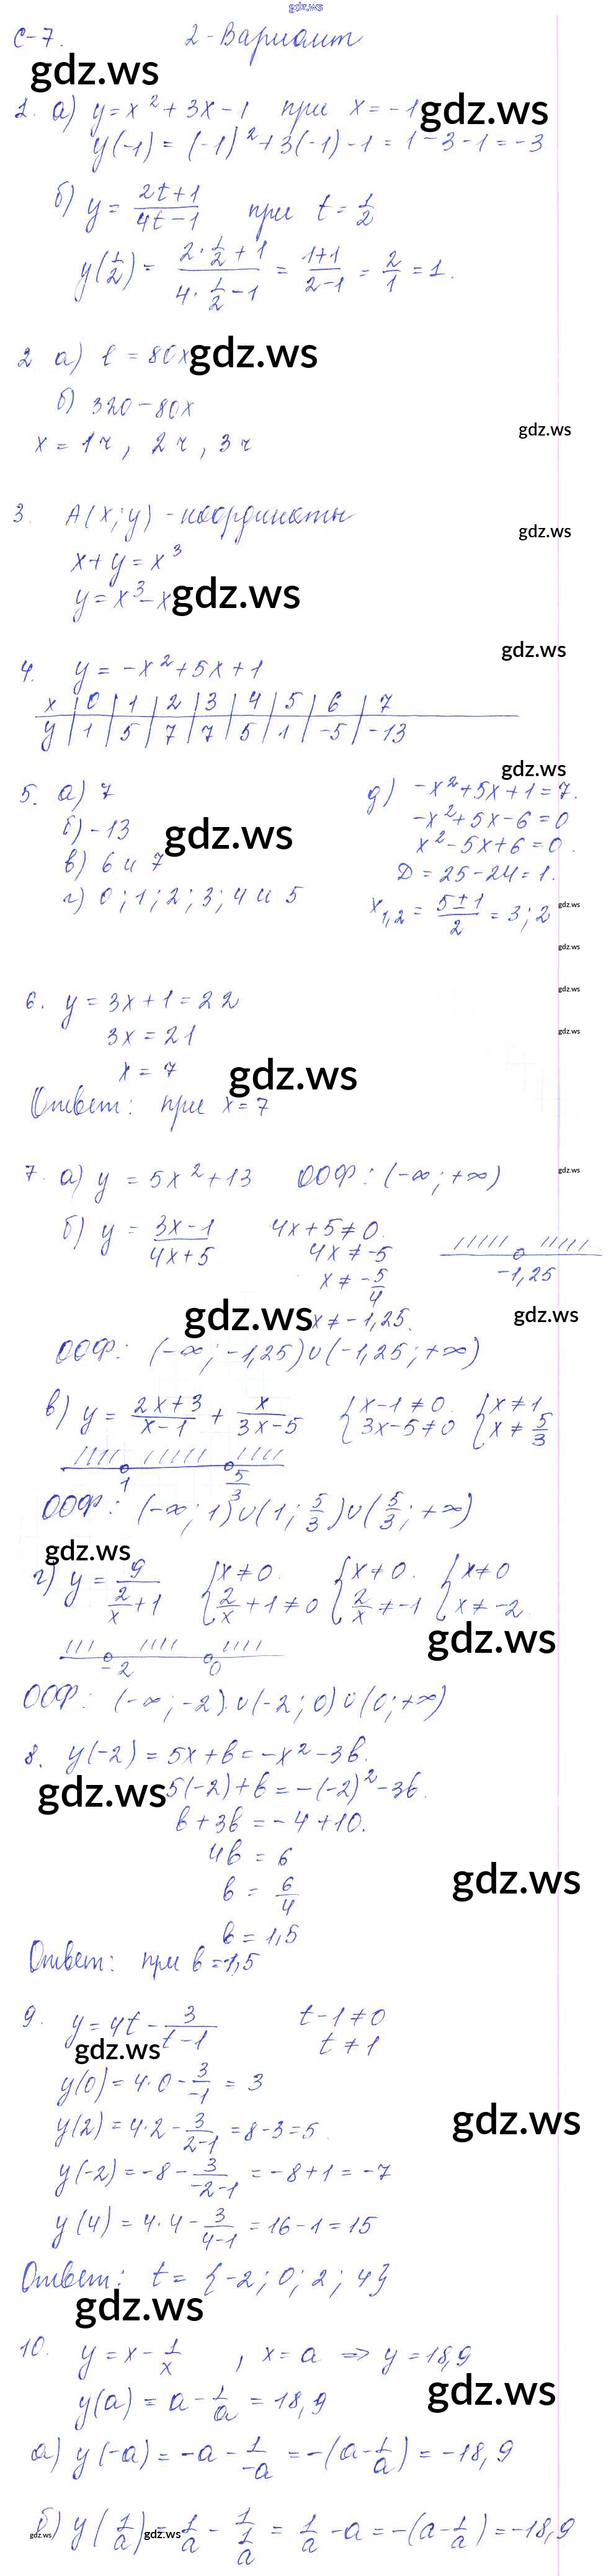 gdz.ws
С-7. 2-Вариант
gdz.ws
1. а) y = x² + 3x - 1 при x = -1
gdz.ws
y(-1) = (-1)² + 3(-1) - 1 = 1 - 3 - 1 = -3
б) y = (2t+1)/(4t-1) при t = 1/2
y(1/2) = (2·1/2 + 1)/(4·1/2 - 1) = (1+1)/(2-1) = 2/1 = 1.
2 а) l = 80x
gdz.ws
б) 320 - 80x
gdz.ws
x = 1ч, 2ч, 3ч
3. А(x; y) - координаты
gdz.ws
x + y = x³
y = x³ - x
gdz.ws
gdz.ws
4. y = -x² + 5x + 1
x | 0 | 1 | 2 | 3 | 4 | 5 | 6 | 7
y | 1 | 5 | 7 | 7 | 5 | 1 | -5 | -13
gdz.ws
5. а) 7
б) -13
gdz.ws
в) 6 и 7
г) 0; 1; 2; 3; 4 и 5
д) -x² + 5x + 1 = 7.
-x² + 5x - 6 = 0
x² - 5x + 6 = 0.
D = 25 - 24 = 1.
x1,2 = (5±1)/2 = 3; 2
gdz.ws
gdz.ws
gdz.ws
6. y = 3x + 1 = 22
3x = 21
gdz.ws
x = 7
gdz.ws
Ответ: при x = 7
7. а) y = 5x² + 13 ООФ: (-∞; +∞)
gdz.ws
б) y = (3x-1)/(4x+5) 4x + 5 ≠ 0.
4x ≠ -5
x ≠ -5/4
-1,25
gdz.ws
x ≠ -1,25.
gdz.ws
ООФ: (-∞; -1,25) ∪ (-1,25; +∞)
в) y = (2x+3)/(x-1) + x/(3x-5) {x-1 ≠ 0. {x ≠ 1
{3x-5 ≠ 0 {x ≠ 5/3
1 5/3
ООФ: (-∞; 1) ∪ (1; 5/3) ∪ (5/3; +∞)
gdz.ws
г) y = 9/(2/x + 1) {x ≠ 0. {x ≠ 0. {x ≠ 0
{2/x + 1 ≠ 0 {2/x ≠ -1 {x ≠ -2
gdz.ws
-2 0
ООФ: (-∞; -2) ∪ (-2; 0) ∪ (0; +∞)
8. y(-2) = 5x + b = -x² - 3b.
gdz.ws
5(-2) + b = -(-2)² - 3b.
b + 3b = -4 + 10.
4b = 6
gdz.ws
b = 6/4
b = 1,5
Ответ: при b = 1,5
9. y = 4t - 3/(t-1) t - 1 ≠ 0
t ≠ 1
gdz.ws
y(0) = 4·0 - 3/-1 = 3
gdz.ws
y(2) = 4·2 - 3/(2-1) = 8 - 3 = 5.
y(-2) = -8 - 3/(-2-1) = -8 + 1 = -7
y(4) = 4·4 - 3/(4-1) = 16 - 1 = 15
Ответ: t = {-2; 0; 2; 4}
gdz.ws
10. y = x - 1/x, x = a ⇒ y = 18,9
gdz.ws
y(a) = a - 1/a = 18,9
а) y(-a) = -a - 1/-a = -(a - 1/a) = -18,9
б) y(1/a) = 1/a - 1/(1/a) = 1/a - a = -(a - 1/a) = -18,9
gdz.ws
gdz.ws